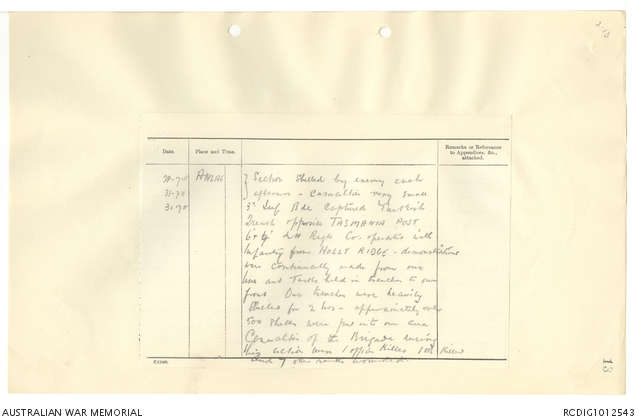 Date.
Place and Time.
Remarks or References to Appendices, &c., attached.
ANZAC
Section shelled by enemy each
afternoon - Casualties very small
3rd Inf Bde Captured Turkish
Trench opposite TASMANIA POST
LH Regts Co operated with
Infantry from HOLLY RIDGE - demonstrations
were continually made from our
lines and Turks held in trenches to our
front. Our trenches were heavily
shelled for 2 hrs - approximately over
500 shells were put into our area
Casualties of the Brigade during
this action were 1 officer killed 1 OR killed
and 7 other ranks wounded.
13
AUSTRALIAN WAR MEMORIAL
RCDIG1012543